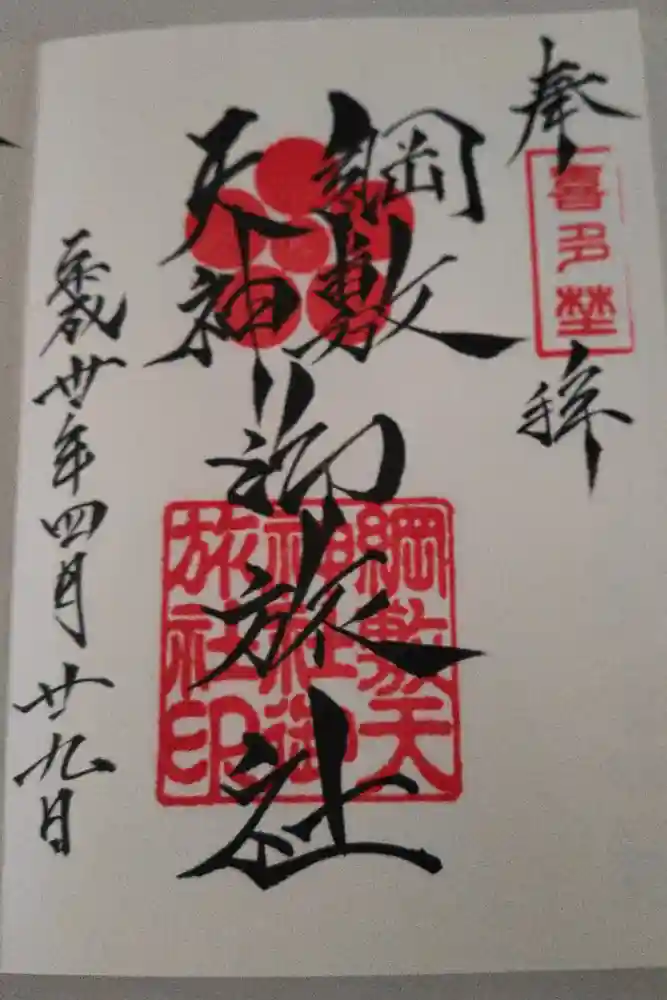 奉拝
喜多埜
綱敷
天神
御旅社
綱敷天
神社御
旅社印
平成卅年四月廿九日